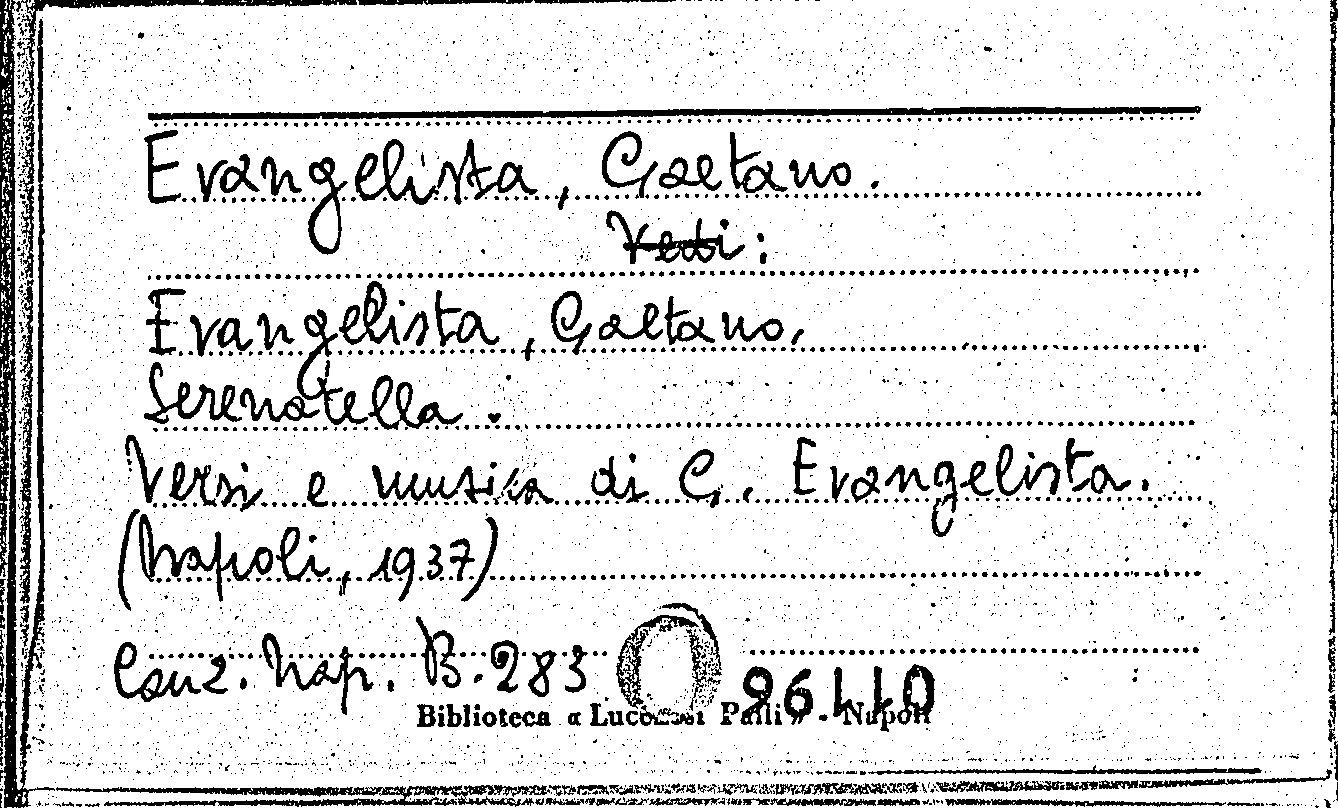 Evangelista, Gaetano.
Vedi:
Evangelista, Gaetano.
Serenatella.
Versi e musica di G. Evangelista.
(Napoli, 1937)
Canz. Nap. B. 283
96110
Biblioteca « Lucchesi Palli » - Napoli